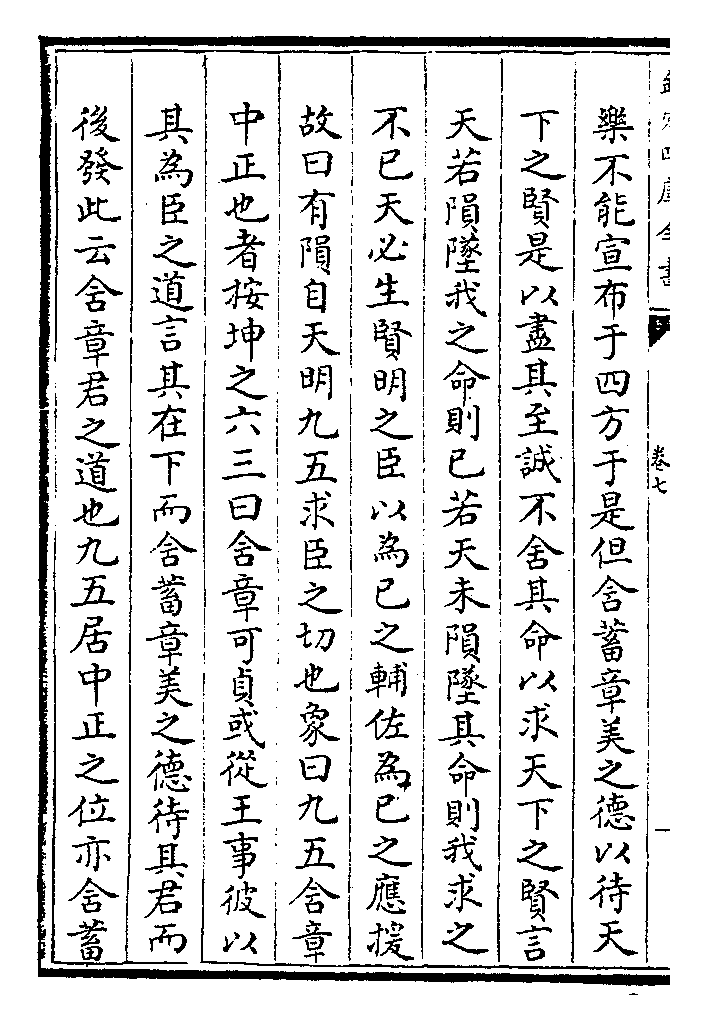 欽定四庫全書
卷七
樂不能宣布于四方于是但含蓄章美之德以待天
下之賢是以盡其至誠不舍其命以求天下之賢言
天若隕墜我之命則已若天未隕墜其命則我求之
不已天必生賢明之臣以為已之輔佐為已之應援
故曰有隕自天明九五求臣之切也象曰九五含章
中正也者按坤之六三曰含章可貞或從王事彼以
其為臣之道言其在下而含蓄章美之德待其君而
後發此云含章君之道也九五居中正之位亦含蓄